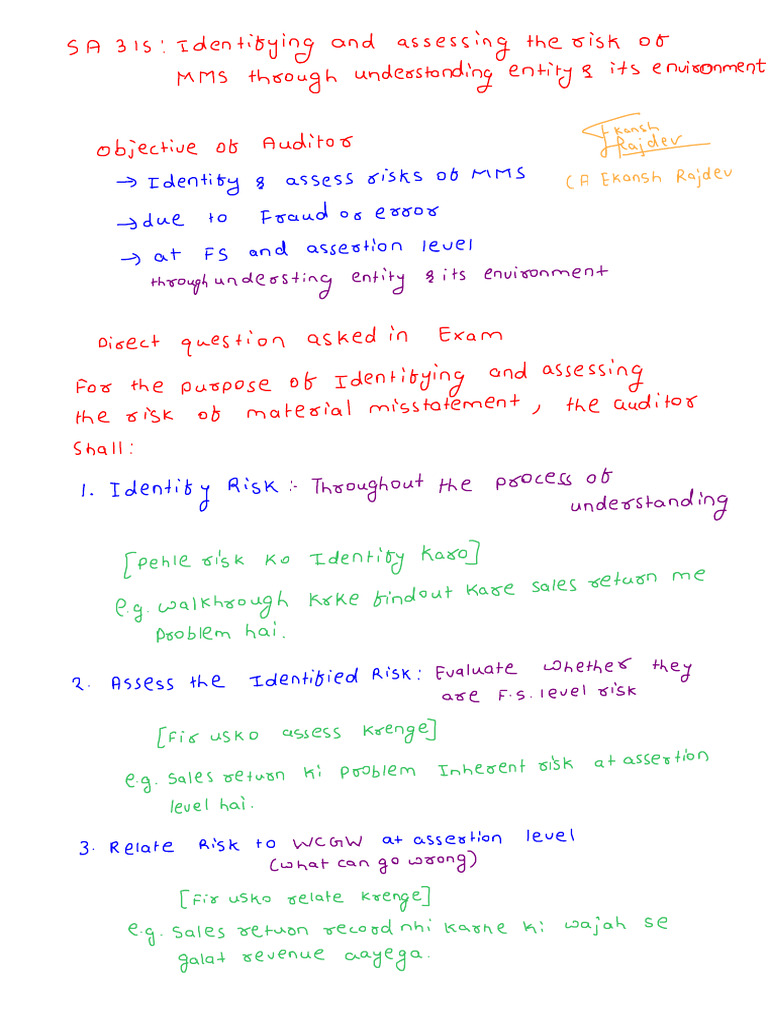 SA 315: Identifying and assessing the risk of
MMS through understanding entity & its environment
Objective of Auditor
Ekansh
Rajdev
CA Ekansh Rajdev
→ Identify & assess risks of MMS
→ due to Fraud or error
→ at FS and assertion level
through understing entity & its environment
Direct question asked in Exam
For the purpose of Identifying and assessing
the risk of material misstatement, the auditor
Shall:
1. Identify Risk :- Throughout the process of
understanding
[Pehle risk ko Identify Karo]
e.g. walkhrough krke findout kare sales return me
problem hai.
2. Assess the Identified Risk: Evaluate whether they
are F.S. level risk
[Fir usko assess krenge]
e.g. sales return ki problem Inherent risk at assertion
level hai.
3. Relate Risk to WCGW at assertion level
(what can go wrong)
[Fir usko relate krenge]
e.g. sales return record nhi karne ki wajah se
galat revenue aayega.